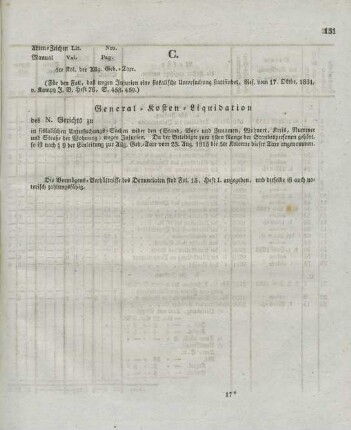 131
Akten-Zeichen Lit. Nro.
Manual Vol. Pag.
C.
zur Kol. der Allg. Geb.-Taxe.
(Für den Fall, daß wegen Injurien eine fiskalische Untersuchung stattfindet, Res. vom 17. Oktbr. 1831,
v. Kamptz J. B. Heft 76. S. 488. 489.)
General-Kosten-Liquidation
des N. Gerichts zu
in fiskalischen Untersuchungs-Sachen wider den (Stand, Vor- und Zunamen, Wohnort, Kreis, Nummer
und Straße der Wohnung) wegen Injurien. Da der Beleidigte zum Range der Standespersonen gehört,
so ist nach § 9 der Einleitung zur Allg. Geb.-Taxe vom 23. Aug. 1815 die Kolonne dieser Taxe angenommen.
Die Vermögens-Verhältnisse des Denunciaten sind Fol. 15. Heft I. angegeben, und derselbe ist auch no-
torisch zahlungsfähig.
17*